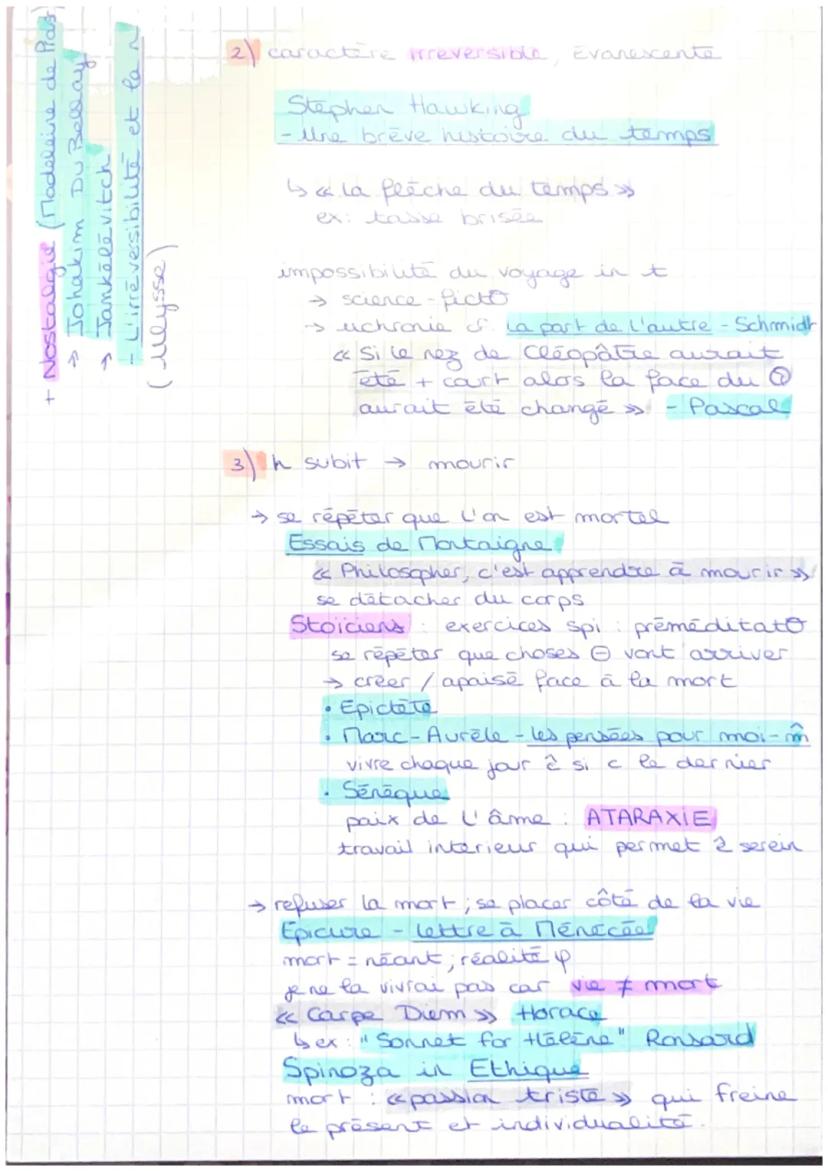 + Nostalgie (Madeleine de
⇒ Johakim Du Bellay
→ Jankélévitch
- L'irréversibilité et la n
(Ulysse)
2) caractère irreversible, évanescente
Stephen Hawking
- Une brève histoire du temps
↳ « la flèche du temps »
ex: tasse brisée
impossibilité du voyage in t
→ science-fict⊖
→ uchronie cf. La part de l'autre - Schmidt
« Si le nez de Cléopâtre aurait
été + court alors la face du
aurait été changé » - Pascal
3) h subit → mourir
→ se répéter que l'on est mortel
Essais de Montaigne
« Philosopher, c'est apprendre à mourir »
se détacher du corps
Stoïciens : exercices spi : préméditat⊖
se répéter que choses ⊖ vont arriver
→ créer / apaisé face à la mort
• Epictète
• Marc-Aurèle - les pensées pour moi-m̂
vivre chaque jour ĉ si c le dernier
• Sénèque
paix de l'âme : ATARAXIE
travail intérieur qui permet ê serein
→ refuser la mort ; se placer côté de la vie
Epicure - Lettre à Ménécée
mort = néant ; réalité φ
je ne la vivrai pas car vie ≠ mort
« Carpe Diem » Horace
↳ ex : "Sonnet for Hélène" Ronsard
Spinoza in Ethique
mort : « passion triste » qui freine
le présent et individualité.